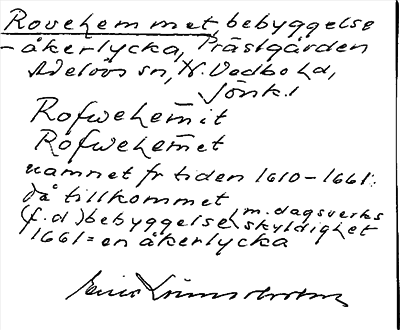 Rovehemmet bebyggelse
-åkerlycka, Prästgården
Adelövs sn, N. Vedbo hd,
Jönk. l
Rofwehem̅it
Rofwehem̅et
namnet fr tiden 1610-1661:
då tillkommet
(f.d) bebyggelse m. dagsverks
skyldighet
1661 = en åkerlycka